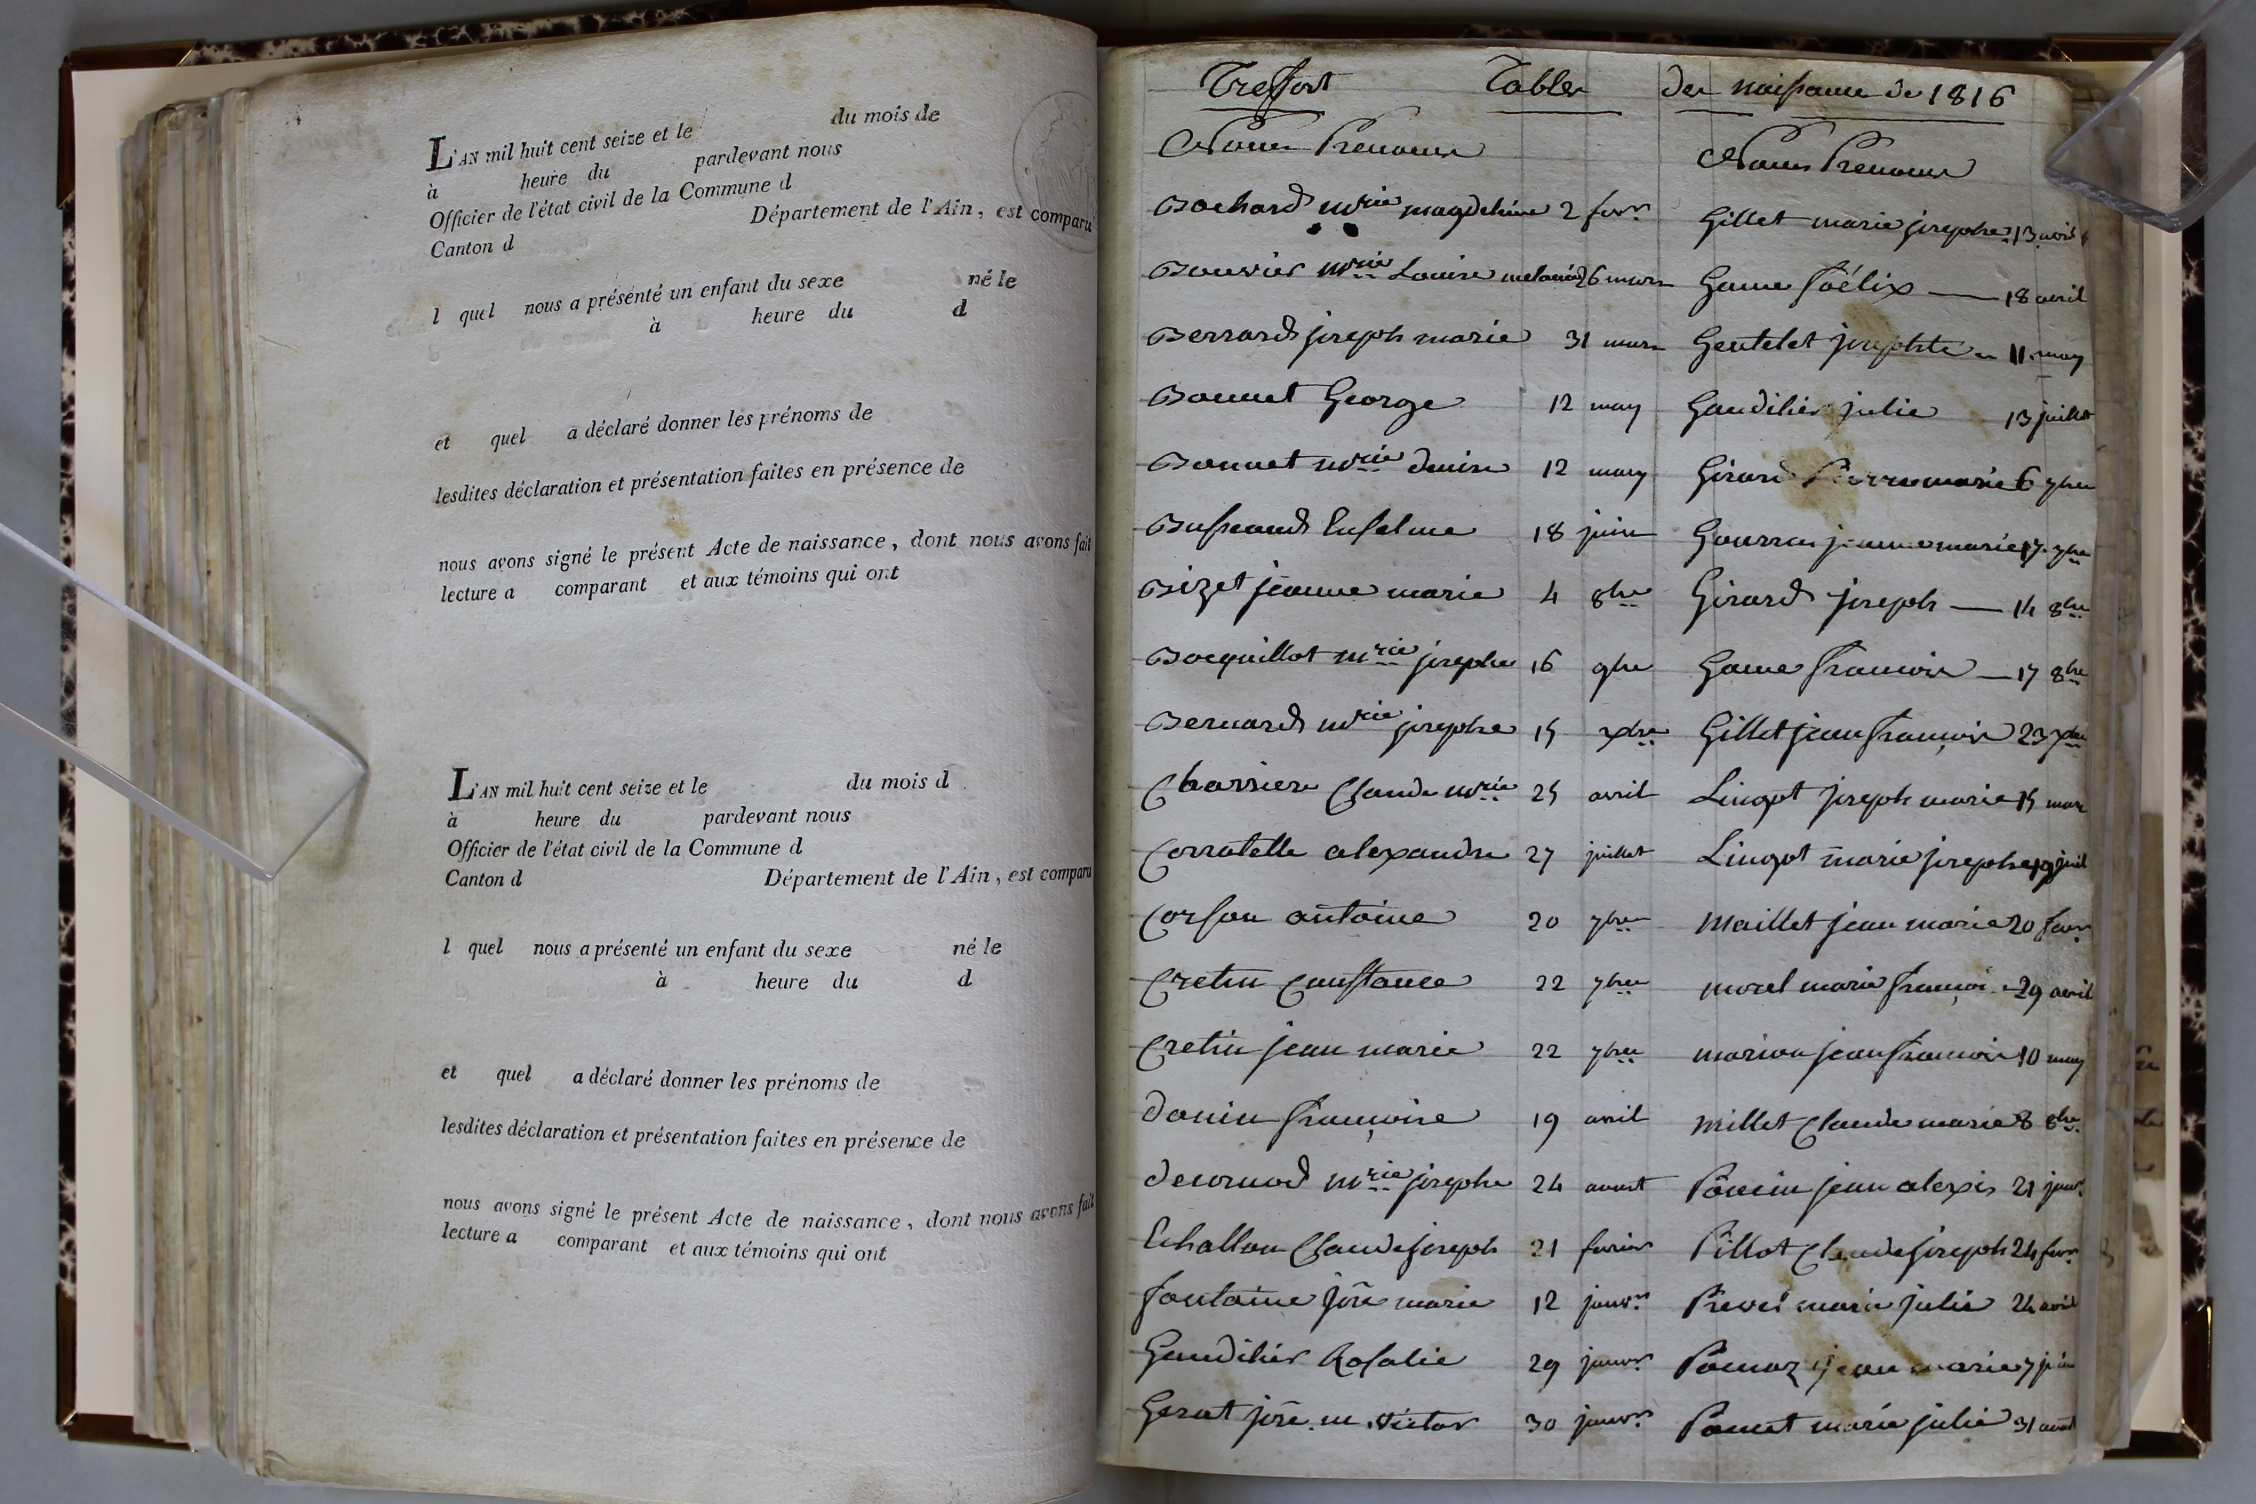 L'AN mil huit cent seize et le du mois de
à heure du pardevant nous
Officier de l'état civil de la Commune d
Canton d Département de l'Ain, est comparu
l quel nous a présenté un enfant du sexe né le
à heure du d
et quel a déclaré donner les prénoms de
lesdites déclaration et présentation faites en présence de
nous avons signé le présent Acte de naissance, dont nous avons fait
lecture a comparant et aux témoins qui ont
L'AN mil huit cent seize et le du mois d
à heure du pardevant nous
Officier de l'état civil de la Commune d
Canton d Département de l'Ain, est comparu
l quel nous a présenté un enfant du sexe né le
à heure du d
et quel a déclaré donner les prénoms de
lesdites déclaration et présentation faites en présence de
nous avons signé le présent Acte de naissance, dont nous avons fait
lecture a comparant et aux témoins qui ont
Treffort Tables des naissance de 1816
Noms Prenoms
Bochard mrie magdeleine 2 fevr
Bouvier mrie Louise melanie 26 mars
Berrard joseph marie 31 mars
Bonnet George 12 may
Bonnet mrie denise 12 may
18 juin
Bizet jeanne marie 4 8bre
Bocquillot mrie josephe 16 9bre
Bernard mrie josephe 15 xbre
Charriere Claude mrie 25 avril
Corratelle alexandre 27 juillet
Corson antoine 20 7bre
Cretin Constance 22 7bre
Cretin jean marie 22 7bre
donin françoise 19 avril
mrie josephe 24 aoust
Echallon Claude joseph 21 fevrier
fontaine jne marie 12 janvr
Gaudilier Rosalie 29 janvr
victor 30 janvr
Noms Prenoms
Gillet marie josephe 13 avril
Game félix 18 avril
Gentelet josephte 11 may
Gaudilier julie 13 juillet
Girard Pierre marie 6 7bre
jeanne marie 17 7bre
Girard joseph 14 8bre
Game francois 17 8bre
Gillet jean françois 23 xbre
Lingot joseph marie 15 mars
Lingot marie josephe 19 juil
Maillet jean marie 20 fevr
morel marie françoi 29 avril
marion jean francois 10 may
millet Claude marie 8 8bre
Poncin jean alexis 21 janv
Pillot Claude joseph 24 fevr
marie julie 24 avril
jean marie 7 juin
marie julie 31 aout